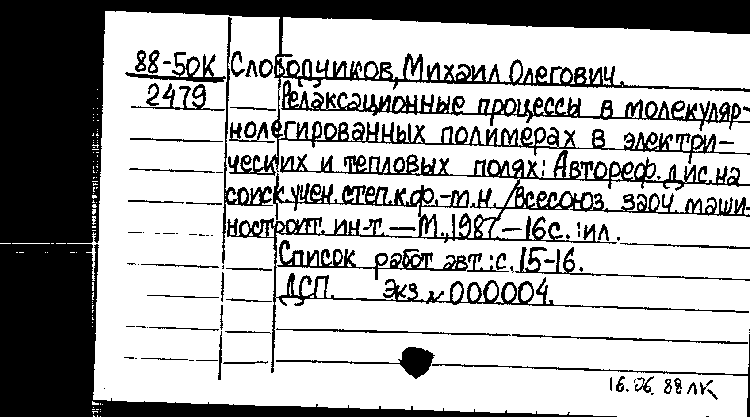 88-50К Слободчиков, Михаил Олегович.
2479 Релаксационные процессы в молекуляр-
нолегированных полимерах в электри-
ческих и тепловых полях: Автореф. дис. на
соиск. учен. степ. к. ф.-т. н. / Всесоюз. заоч. маши-
ностроит. ин-т. — М., 1987. — 16 с. : ил.
Список работ авт.: с. 15-16.
ДСП. Экз. № 000004.
16.06.88 ЛК